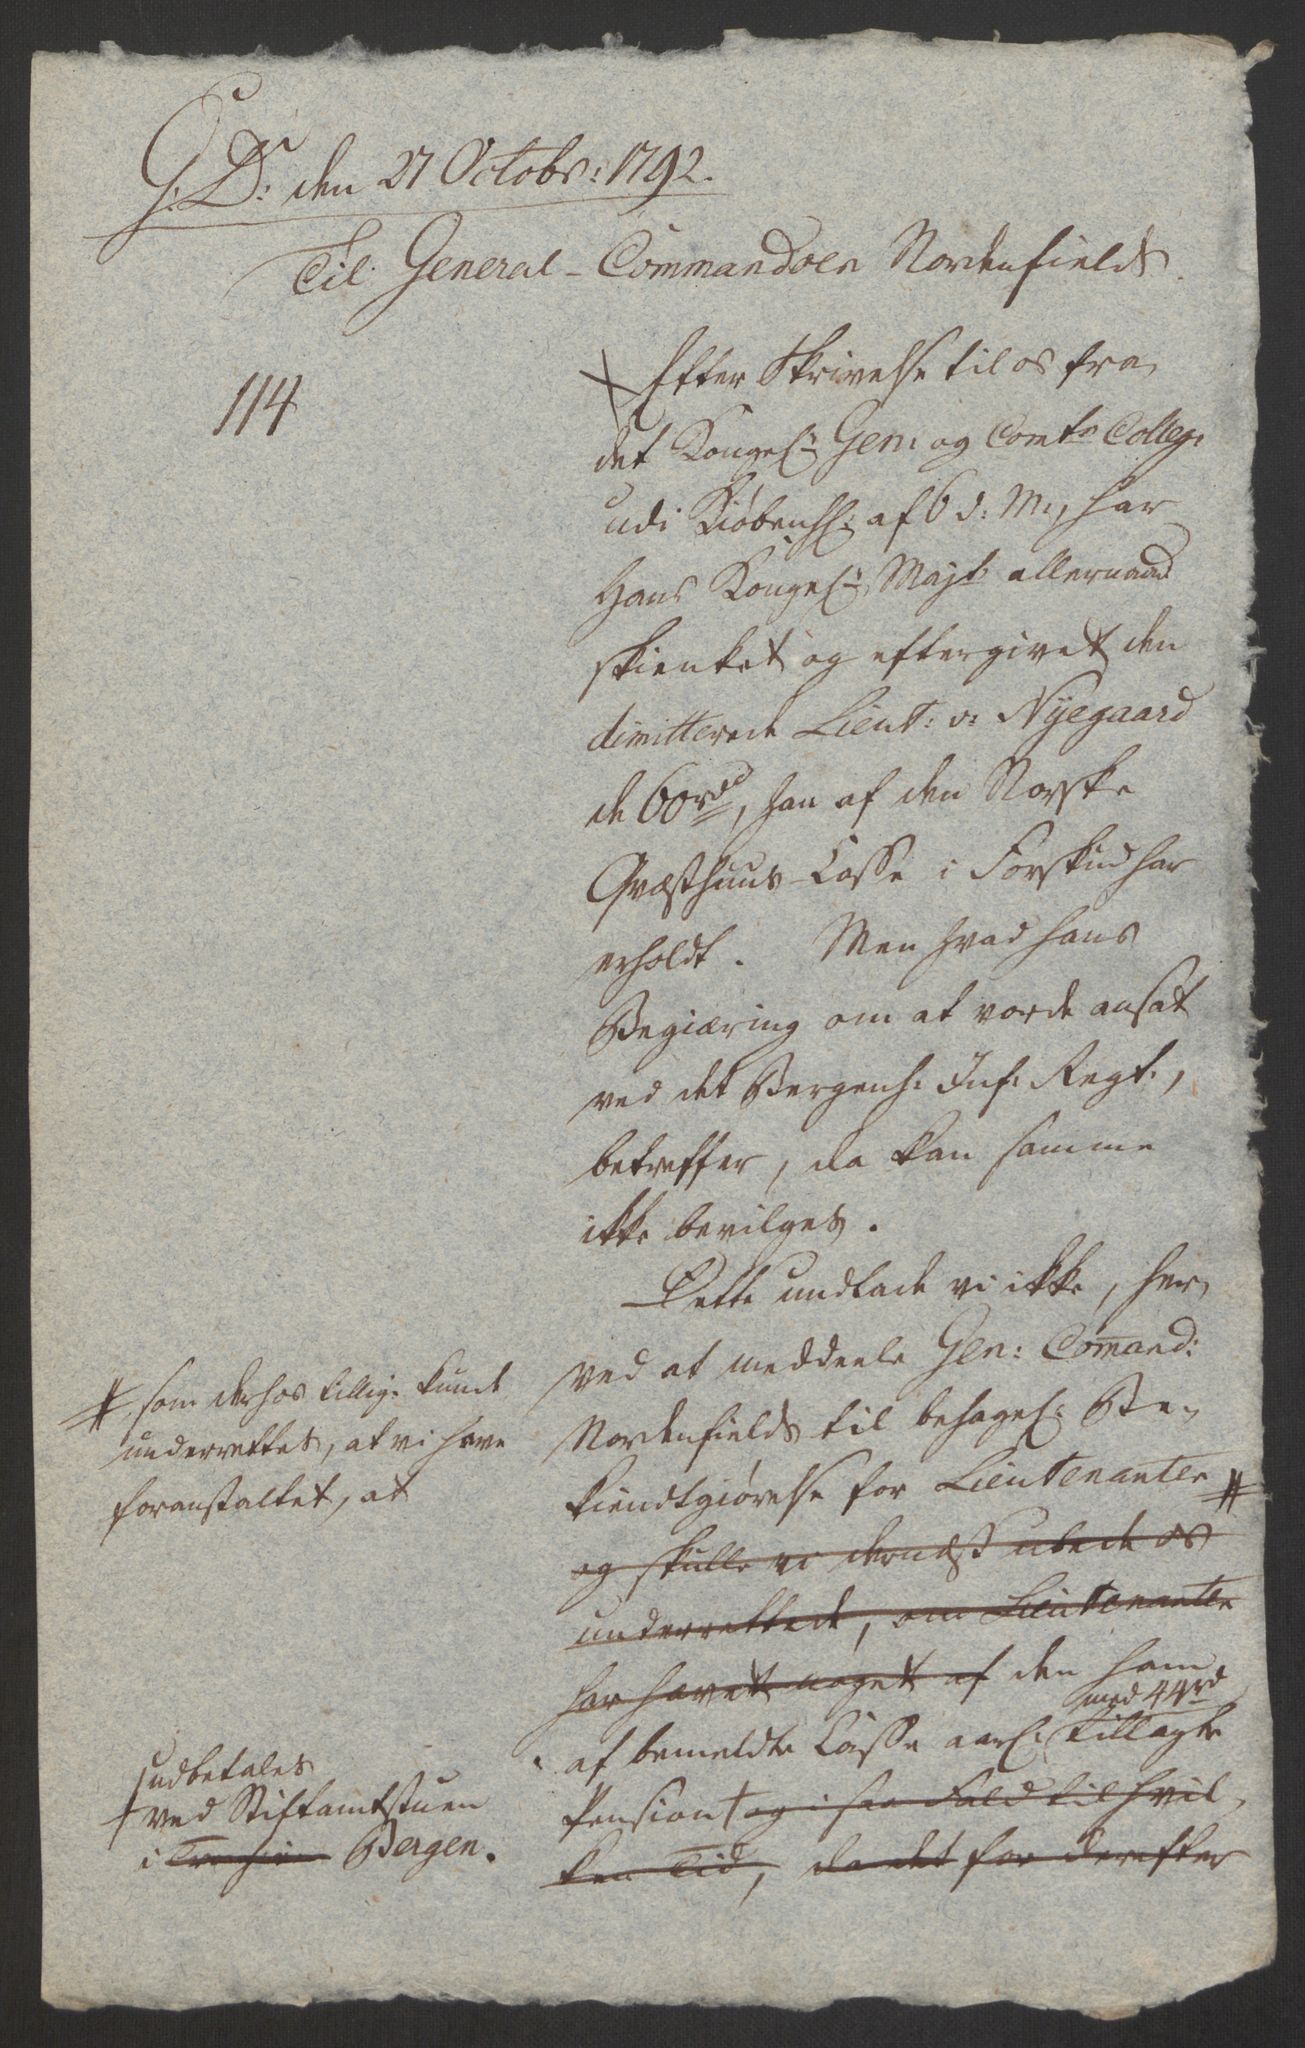 G. D. den 27 Octobr: 1792.
Til General-Commandoen Nordenfields.
114
Efter Skrivelse til os fra
det Kongel: Gen: og Comts Colleg:
udi Kiøbenh: af 6 d: M:, har
Hans Kongel: Majt allernaad
skienket og eftergivet den
dimitterede Lieut: v: Nÿegaard
de 60 rd, han af den Norske
Qvæsthuus-Casse i Forskud har
erholdt. Men hvad hans
Begiæring om at vorde ansat
ved det Bergenh: Inf: Regt.,
betreffer, da kan samme
ikke bevilges.
Dette undlade vi ikke, her
ved at meddeele Gen: Comand:
Nordenfields til behagel: Be-
kiendtgiørelse for Lieutenanten #
og skulle vi dernæst udbede os
underrettede, om Lieutenanten
har hævet noget af den ham
med 44 rd
af bemeldte Casse aarl: tillagte
Pension † og i saa Fald til hvil-
ken Tid, da det for derefter
# som derhos tillige kunde
underrettes, at vi have
foranstaltet, at
† udbetales
ved Stiftamtstuen
i Bergen.